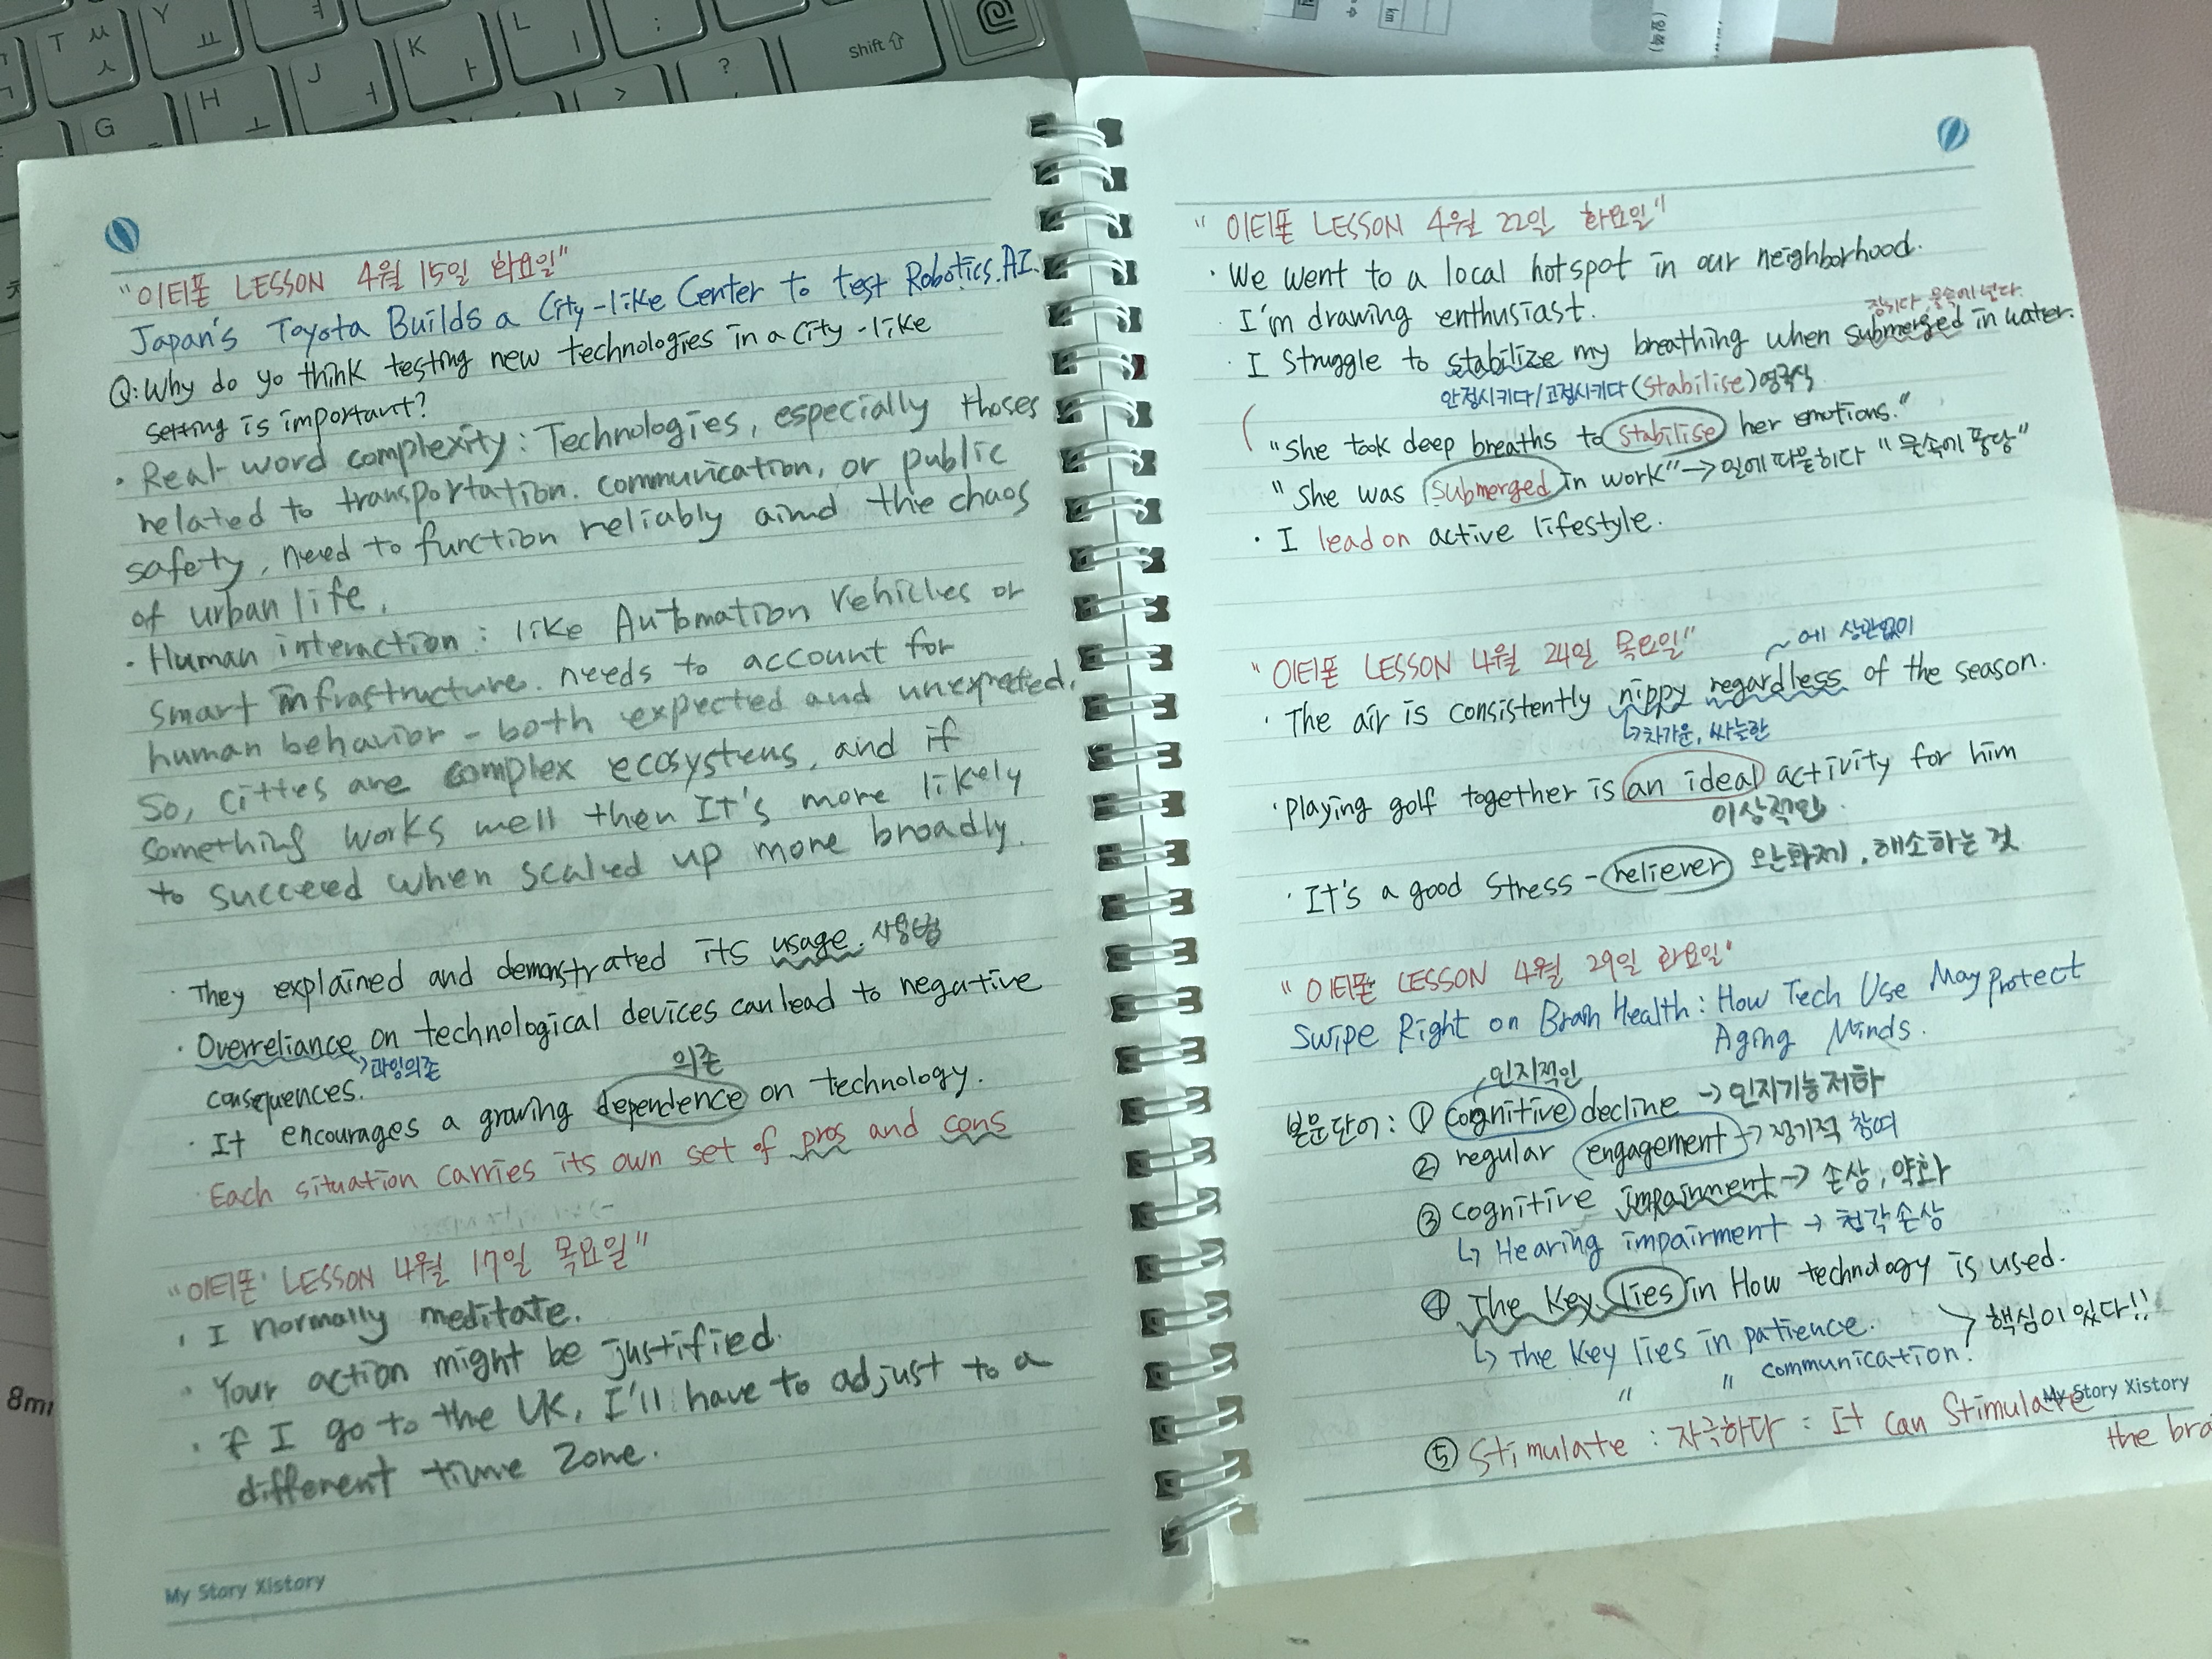 "이티폰 LESSON 4월 15일 화요일"
Japan's Toyota Builds a City-like Center to test Robotics.AI.
Q:Why do yo think testing new technologies in a city-like
setting is important?
· Real-word complexity: Technologies, especially thoses
related to transportation. communication, or public
safety, need to function reliably aimd the chaos
of urban life.
· Human interaction: like Automation vehicles or
smart infrastructure. needs to account for
human behavior - both expected and unexpected.
So, citties are complex ecosystems, and if
something works well then It's more likely
to succeed when scaled up more broadly.
· They explained and demonstrated its usage. 사용법
· Overreliance on technological devices can lead to negative
→과잉의존
consequences.
의존
· It encourages a growing dependence on technology.
· Each situation carries its own set of pros and cons
"이티폰' LESSON 4월 17일 목요일"
· I normally meditate.
· Your action might be justified.
· if I go to the UK, I'll have to adjust to a
different time zone.
My Story Xistory
"이티폰 LESSON 4월 22일 화요일"
· We went to a local hotspot in our neighborhood.
· I'm drawing enthusiast.
잠기다 물속에 넣다.
· I struggle to stabilize my breathing when submerged in water.
안정시키다/고정시키다(Stabilise)영국식
"She took deep breaths to stabilise her emotions."
"She was submerged in work"→일에 파묻히다 "물속에 퐁당"
· I lead on active lifestyle.
"이티폰 LESSON 4월 24일 목요일"
~에 상관없이
· The air is consistently nippy regardless of the season.
↳차가운, 싸늘한
· Playing golf together is an ideal activity for him
이상적인.
· It's a good stress-reliever 완화제, 해소하는 것
"이티폰 LESSON 4월 29일 화요일"
Swipe Right on Brain Health: How Tech Use May Protect
Aging Minds.
인지적인
본문단어: ① cognitive decline → 인지기능저하
② regular engagement → 정기적 참여
③ cognitive impairment → 손상, 약화
↳ Hearing impairment → 청각손상
④ The Key lies in How technology is used.
↳ The Key lies in patience.
> 핵심이 있다!!
" " communication.
My Story Xistory
⑤ Stimulate : 자극하다 : It can Stimulate
the bra